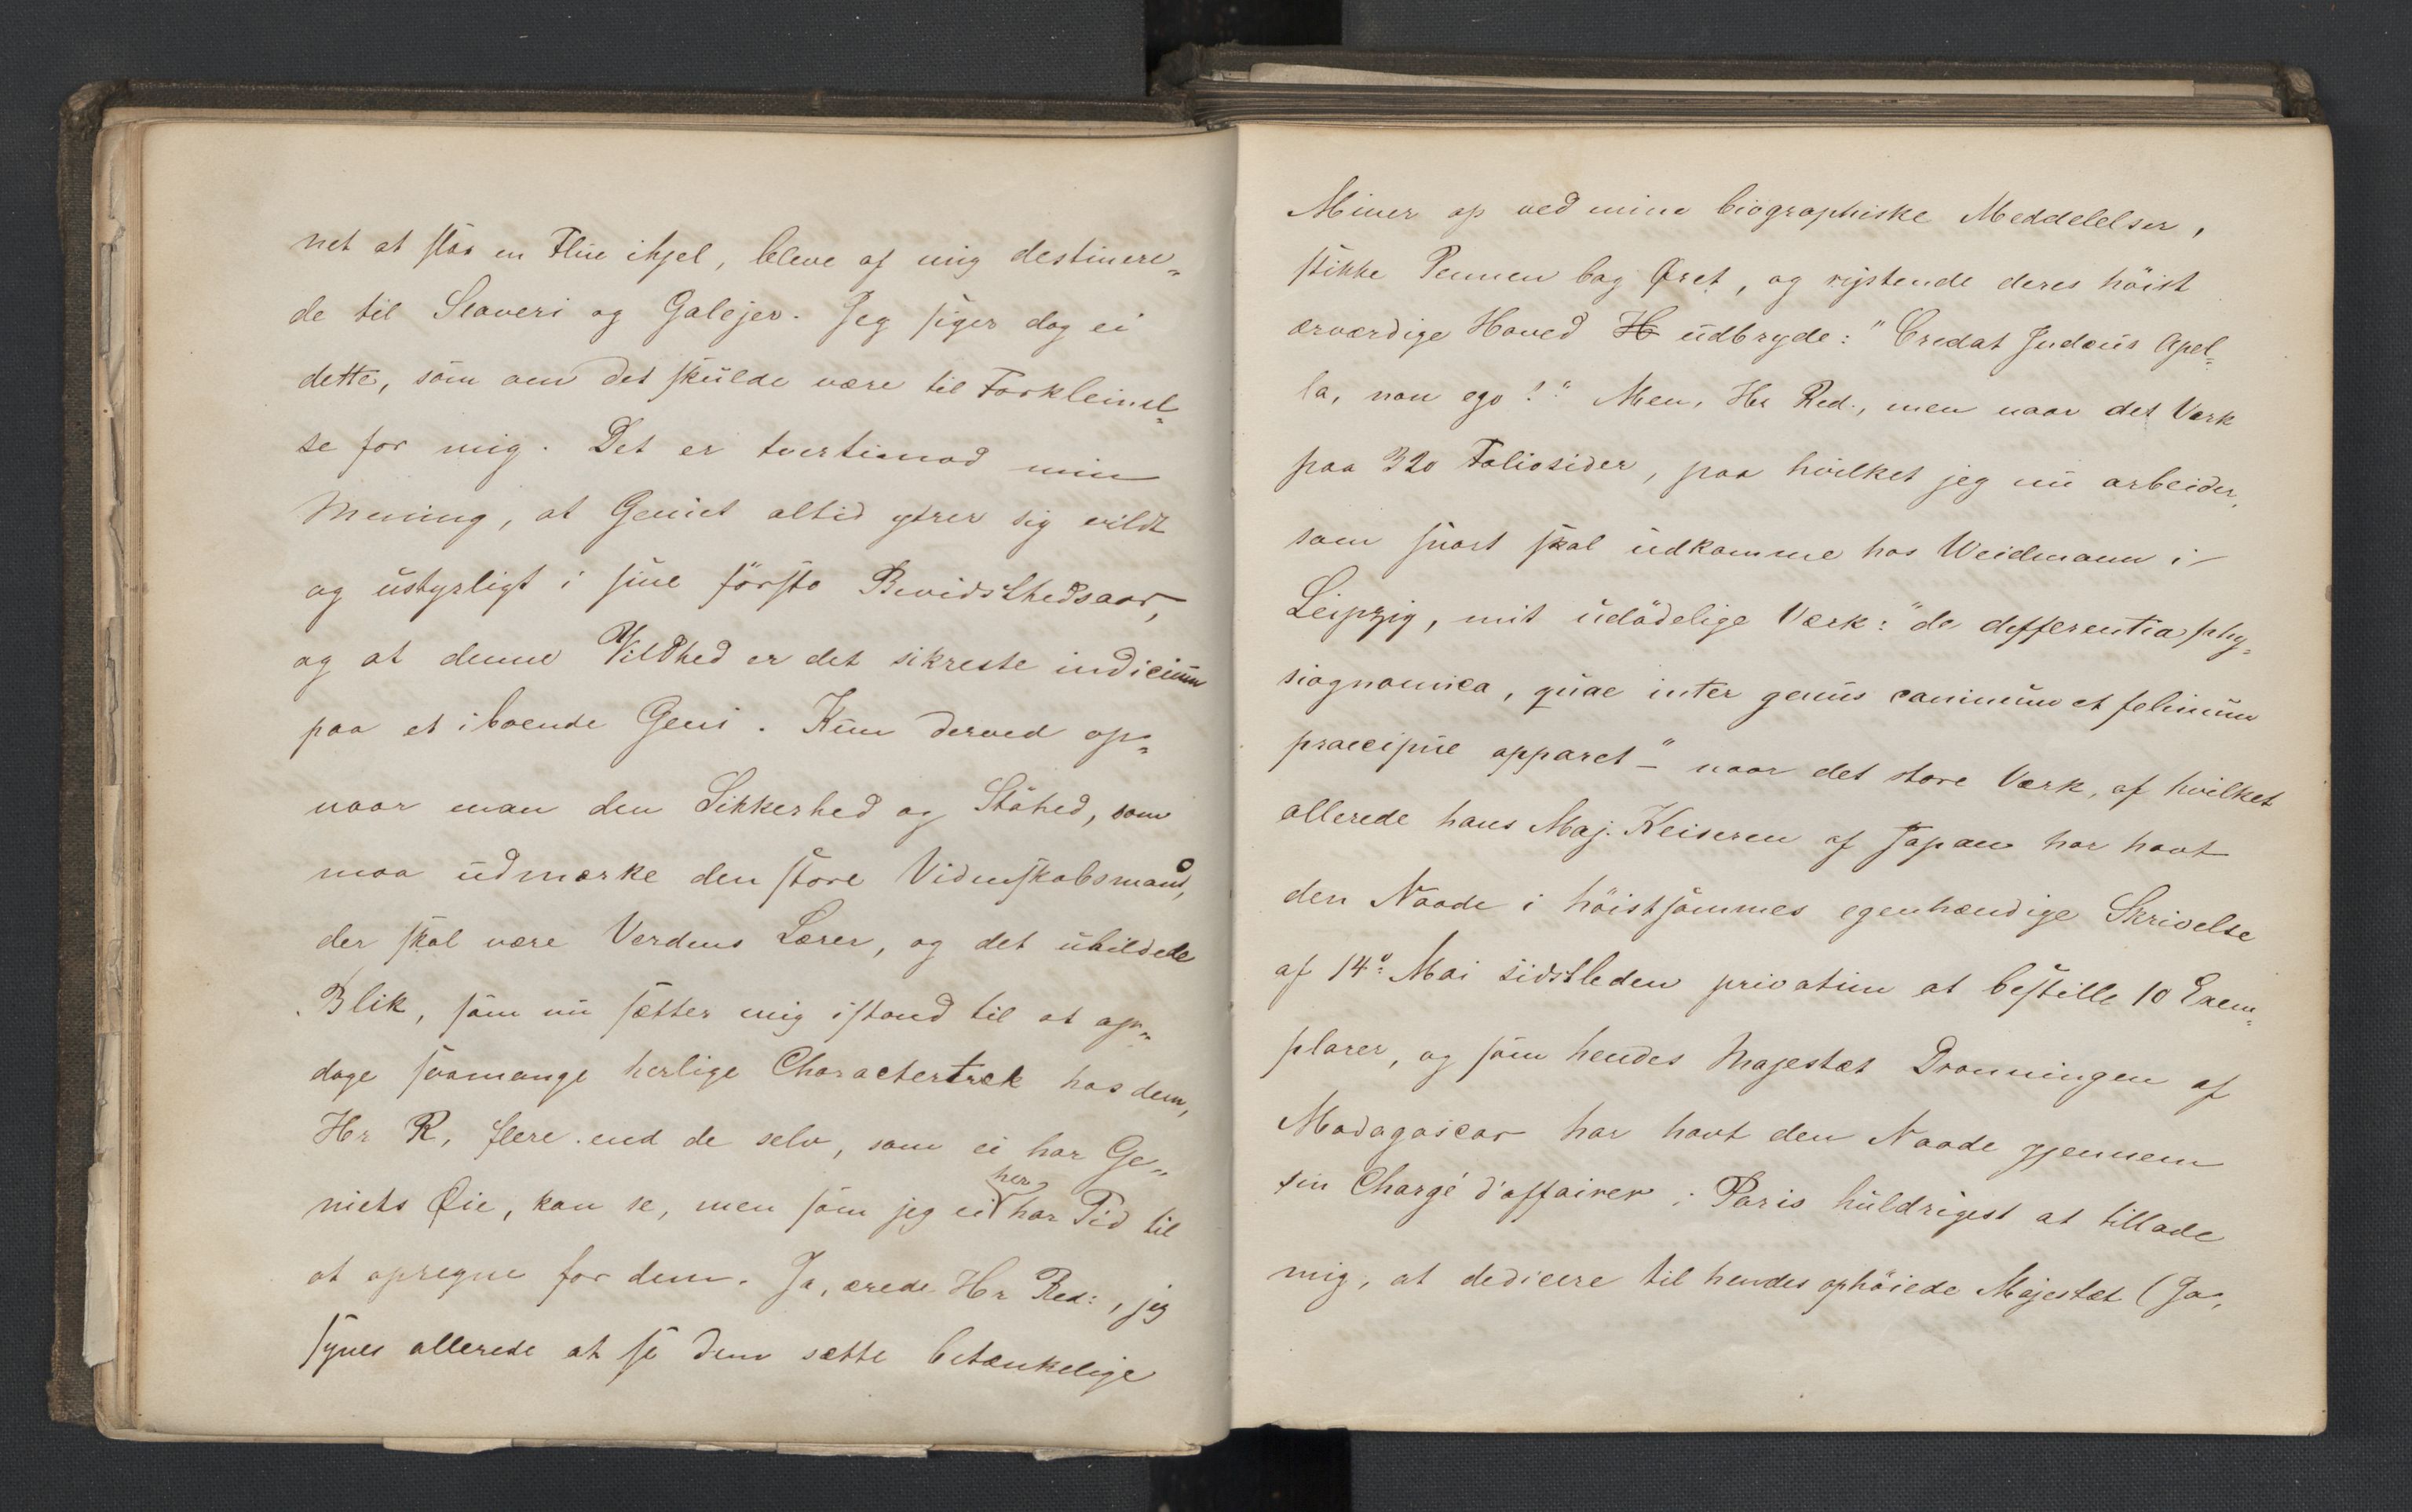 net at slaa en Flue ihjel, bleve af mig destinere=
de til Slaveri og Galejer. Jeg siger dog ei
dette, som om det skulde være til Forkleinel=
se for mig. Det er tvertimod min
Mening, at Geniet altid ytrer sig vildt
og ustyrligt i sine første Bevidsthedsaar,
og at denne Vildhed er det sikreste indicium
paa et iboende Geni. Kun derved op=
naar man den Sikkerhed og Støhed, som
maa udmærke den store Videnskabsmand,
der skal være Verdens Lærer, og det uhildede
Blik, som nu sætter mig istand til at op=
dage saamange herlige Charactertræk hos dem,
Hr R, flere end de selv, som ei har Ge=
niets Øie, kan se, men som jeg ei her har Tid til
at opregne for dem. Ja, ærede Hr Red:, jeg
synes allerede at se dem sætte betænkelige
Miner op ved mine biographiske Meddelelser,
stikke Pennen bag Øret, og rystende deres höist
ærværdige Hoved H udbryde: "Credat Judæus Apel=
la, non ego!" Men, Hr Red., men naar det Værk
paa 320 Foliosider, paa hvilket jeg nu arbeider,
som snart skal udkomme hos Weidmann i
Leipzig, mit udödelige Værk: "de differentia phy=
siognomica, quae inter genus caninum et felinum
praecipue apparet" - naar det store Værk, af hvilket
allerede hans Maj. Keiseren af Japan har havt
den Naade i höistsammes egenhændige Skrivelse
af 14º Mai sidstleden privatim at bestille 10 Exem=
plarer, og som hendes Majestæt Dronningen af
Madagascar har havt den Naade gjennem
sin Chargé d'affairer i Paris huldrigest at tillade
mig, at dedicere til hendes ophöiede Majestæt (Ja,